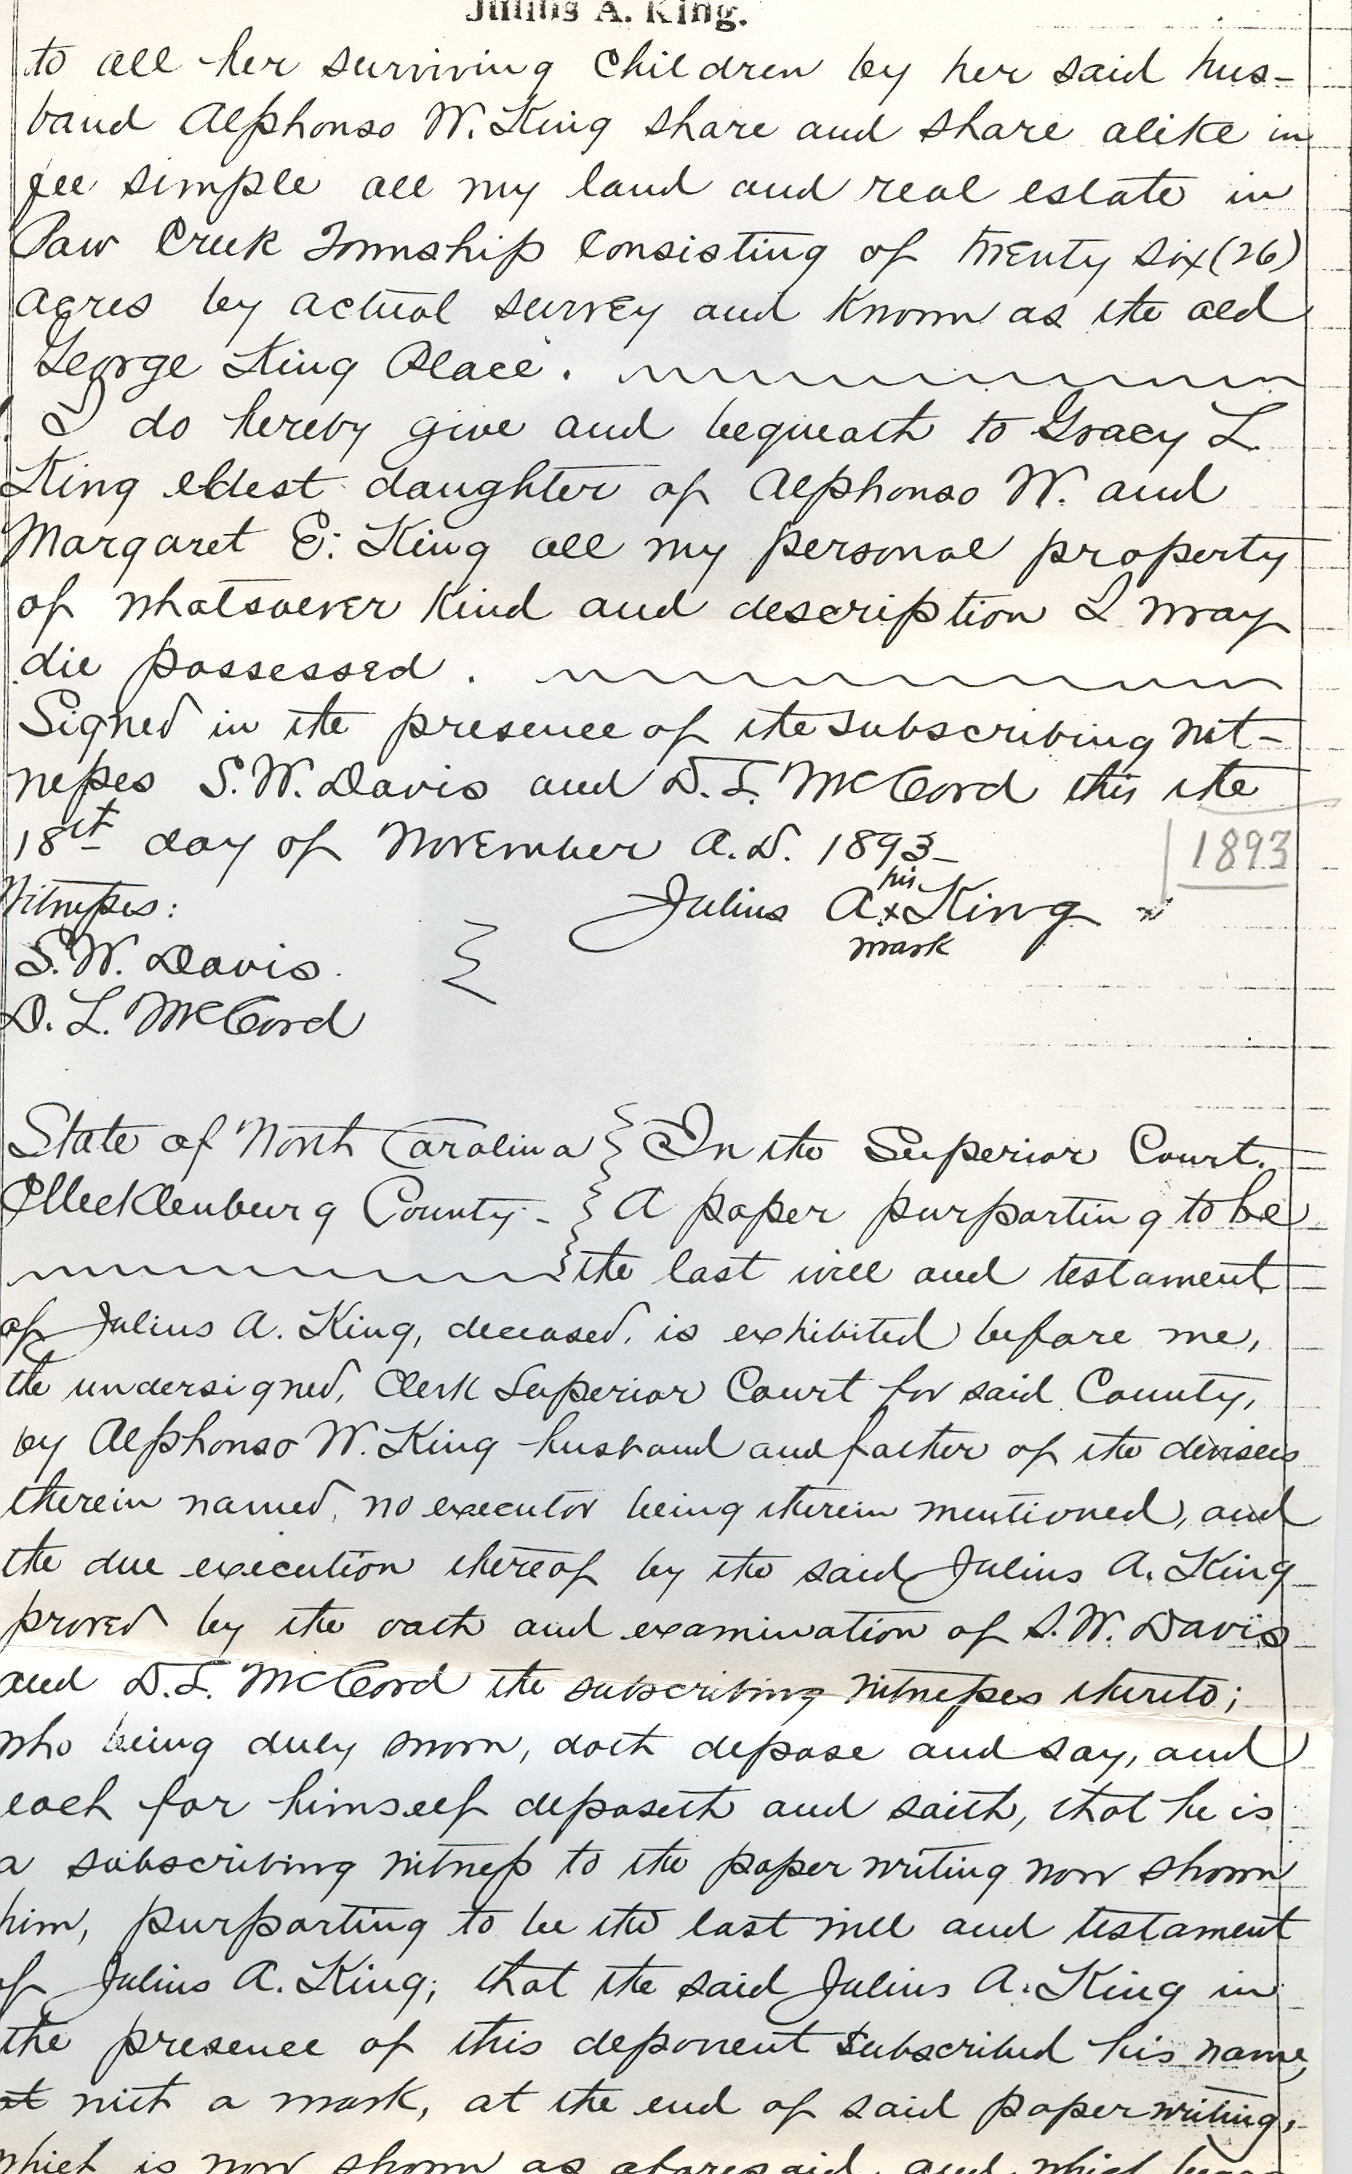 Julius A. King.
to all her surviving Children by her said hus-
band Alphonso W. King share and share alike in
fee simple all my land and real estate in
Paw Creek Township Consisting of Twenty six (26)
acres by actual survey and Known as the old
George King Place.
I do hereby give and bequeath to Gracy L
King eldest daughter of Alphonso W. and
Margaret E. King all my personal property
of whatsoever Kind and description I may
die possessed.
Signed in the presence of the subscribing wit-
nesses S. W. Davis and D. L. McCord this the
18th day of November A.D. 1893-
1893
Witnesses: Julius A x King
his
mark
S. W. Davis.
D. L. McCord
State of North Carolina } In the Superior Court.
Mecklenburg County- } A paper purporting to be
the last will and testament
of Julius A. King, deceased, is exhibited before me,
the undersigned, Clerk Superior Court for said County,
by Alphonso W. King husband and father of the devisees
therein named, no executor being therein mentioned, and
the due execution thereof by the said Julius A. King
proved by the oath and examination of S. W. Davis
and D. L. McCord the subscribing witnesses thereto;
who being duly sworn, doth depose and say, and
each for himself deposeth and saith, that he is
a subscribing witness to the paper writing now shown
him, purporting to be the last will and testament
of Julius A. King; that the said Julius A. King in
the presence of this deponent subscribed his name,
with a mark, at the end of said paper writing,
which is now shown as aforesaid, and which